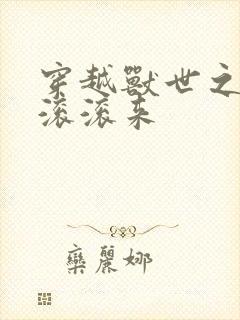 穿越獸世之
滚滚来
欒麗娜